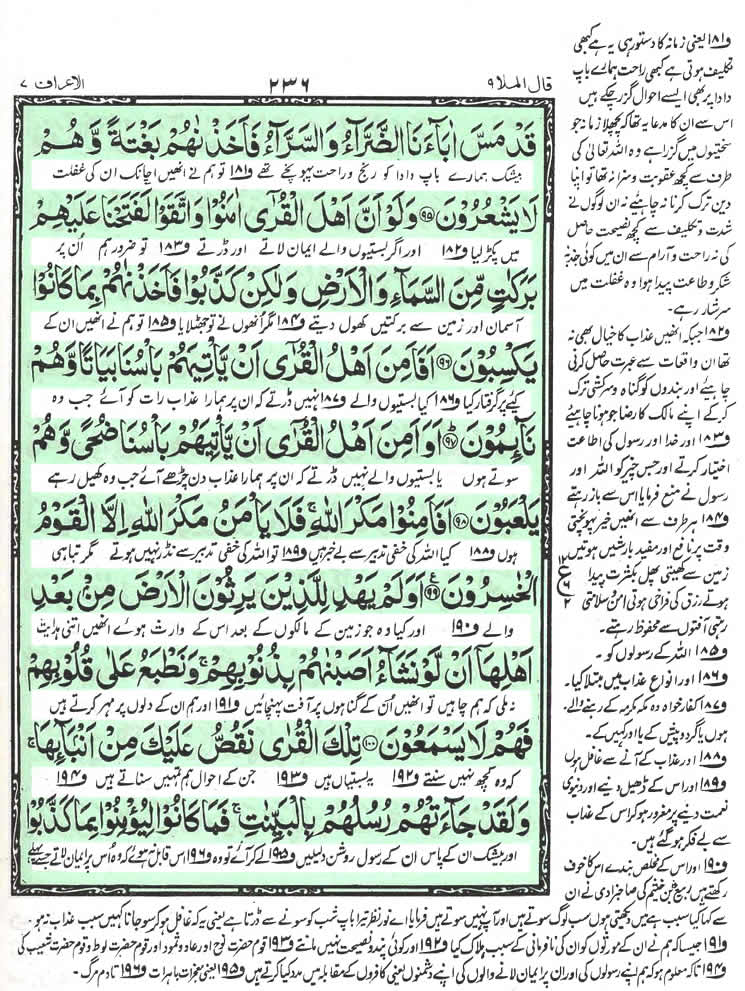 قال الملا ٩
٢٣٦
الاعراف ٧
قَدْ مَسَّ اٰبَآءَنَا الضَّرَّآءُ وَالسَّرَّآءُ فَاَخَذْنٰهُمْ بَغْتَةً وَّهُمْ
بیشک ہمارے باپ دادا کو رنج و راحت پہونچے تھے و۱۸۱ تو ہم نے انھیں اچانک ان کی غفلت
لَا يَشْعُرُوْنَ ۹۵ وَلَوْ اَنَّ اَهْلَ الْقُرٰٓى اٰمَنُوْا وَاتَّقَوْا لَفَتَحْنَا عَلَيْهِمْ
میں پکڑ لیا و۱۸۲ اور اگر بستیوں والے ایمان لاتے اور ڈرتے و۱۸۳ تو ضرور ہم اُن پر
بَرَكٰتٍ مِّنَ السَّمَآءِ وَالْاَرْضِ وَلٰكِنْ كَذَّبُوْا فَاَخَذْنٰهُمْ بِمَا كَانُوْا
آسمان اور زمین سے برکتیں کھول دیتے و۱۸۴ مگر انھوں نے تو جھٹلایا و۱۸۵ تو ہم نے انھیں ان کے
يَكْسِبُوْنَ ۹۶ اَفَاَمِنَ اَهْلُ الْقُرٰٓى اَنْ يَّاْتِيَهُمْ بَاْسُنَا بَيَاتًا وَّهُمْ
کئے پر گرفتار کیا و۱۸۶ کیا بستیوں والے و۱۸۷ نہیں ڈرتے کہ ان پر ہمارا عذاب رات کو آئے جب وہ
نَآئِمُوْنَ ۹۷ اَوَ اَمِنَ اَهْلُ الْقُرٰٓى اَنْ يَّاْتِيَهُمْ بَاْسُنَا ضُحًى وَّهُمْ
سوتے ہوں یا بستیوں والے نہیں ڈرتے کہ ان پر ہمارا عذاب دن چڑھے آئے جب وہ کھیل رہے
يَلْعَبُوْنَ ۹۸ اَفَاَمِنُوْا مَكْرَ اللّٰهِ ۚ فَلَا يَاْمَنُ مَكْرَ اللّٰهِ اِلَّا الْقَوْمُ
ہوں و۱۸۸ کیا اللہ کی خفی تدبیر سے بے خبر ہیں و۱۸۹ تو اللہ کی خفی تدبیر سے نڈر نہیں ہوتے مگر تباہی
الْخٰسِرُوْنَ ۹۹ اَوَلَمْ يَهْدِ لِلَّذِيْنَ يَرِثُوْنَ الْاَرْضَ مِنْ بَعْدِ
والے و۱۹۰ اور کیا وہ جو زمین کے مالکوں کے بعد اس کے وارث ہوئے انھیں اتنی ہدایت
اَهْلِهَآ اَنْ لَّوْ نَشَآءُ اَصَبْنٰهُمْ بِذُنُوْبِهِمْ ۚ وَنَطْبَعُ عَلٰى قُلُوْبِهِمْ
نہ ملی کہ ہم چاہیں تو انھیں اُن کے گناہوں پر آفت پہنچائیں و۱۹۱ اور ہم ان کے دلوں پر مہر کرتے ہیں
فَهُمْ لَا يَسْمَعُوْنَ ۱۰۰ تِلْكَ الْقُرٰى نَقُصُّ عَلَيْكَ مِنْ اَنْۢبَآئِهَا ۚ
کہ وہ کچھ نہیں سنتے و۱۹۲ یہ بستیاں ہیں و۱۹۳ جن کے احوال ہم تمہیں سناتے ہیں و۱۹۴
وَلَقَدْ جَآءَتْهُمْ رُسُلُهُمْ بِالْبَيِّنٰتِ ۚ فَمَا كَانُوْا لِيُؤْمِنُوْا بِمَا كَذَّبُوْا
اور بیشک ان کے پاس ان کے رسول روشن دلیلیں و۱۹۵ لے کر آئے تو وہ و۱۹۶ اس قابل نہ ہوئے کہ وہ اس پر ایمان لاتے جسے پہلے
و۱۸۱ یعنی زمانہ کا دستور ہی یہ ہے کبھی
تکلیف ہوتی ہے کبھی راحت ہمارے باپ
دادا پر بھی ایسے احوال گزر چکے ہیں
اس سے ان کا مدعا یہ تھا کہ پچھلا زمانہ جو
سختیوں میں گزرا ہے وہ اللہ تعالیٰ کی
طرف سے کچھ عقوبت و سزا نہ تھا تو اپنا
دین ترک کرنا نہ چاہئے نہ ان لوگوں نے
شدت و تکلیف سے کچھ نصیحت حاصل
کی نہ راحت و آرام سے ان میں کوئی جذبۂ
شکر و طاعت پیدا ہوا وہ غفلت میں
سرشار رہے۔
و۱۸۲ جبکہ انھیں عذاب کا خیال بھی نہ
تھا ان واقعات سے عبرت حاصل کرنی
چاہئے اور بندوں کو گناہ و سرکشی ترک
کر کے اپنے مالک کا رضا جو ہونا چاہیئے
و۱۸۳ اور خدا اور رسول کی اطاعت
اختیار کرتے اور جس چیز کو اللہ اور
رسول نے منع فرمایا اس سے باز رہتے
و۱۸۴ ہر طرف سے انھیں خیر پہونچتی
وقت پر نافع اور مفید بارشیں ہوتیں
زمین سے کھیتی پھل بکثرت پیدا
ہوتے رزق کی فراخی ہوتی امن و سلامتی
رہتی آفتوں سے محفوظ رہتے۔
و۱۸۵ اللہ کے رسولوں کو۔
و۱۸۶ اور انواع عذاب میں مبتلا کیا۔
و۱۸۷ کفار خواہ وہ مکہ مکرمہ کے رہنے والے
ہوں یا گرد و پیش کے یا اور کہیں کے۔
و۱۸۸ اور عذاب کے آنے سے غافل ہوں
و۱۸۹ اور اس کے ڈھیل دینے اور دنیوی
نعمت دینے پر مغرور ہو کر اس کے عذاب
سے بے فکر ہو گئے ہیں۔
و۱۹۰ اور اس کے مخلص بندے اس کا خوف
رکھتے ہیں ربیع بن خثیم کی صاحبزادی نے ان
سے کہا کیا سبب ہے میں دیکھتی ہوں سب لوگ سوتے ہیں اور آپ نہیں سوتے ہیں فرمایا اے نور نظر تیرا باپ شب کو سونے سے ڈرتا ہے یعنی یہ کہ غافل ہو کر سو جانا کہیں سبب عذاب نہ ہو۔
و۱۹۱ جیسا کہ ہم نے ان کے مورثوں کو ان کی نافرمانی کے سبب ہلاک کیا و۱۹۲ اور کوئی پند و نصیحت نہیں مانتے و۱۹۳ قوم حضرت نوح اور عاد و ثمود اور قوم حضرت لوط و قوم حضرت شعیب کی
و۱۹۴ تاکہ معلوم ہو کہ ہم اپنے رسولوں کی اور ان پر ایمان لانے والوں کی اپنے دشمنوں یعنی کافروں کے مقابلہ میں مدد کیا کرتے ہیں و۱۹۵ یعنی معجزات باہرات و۱۹۶ تا دم مرگ۔